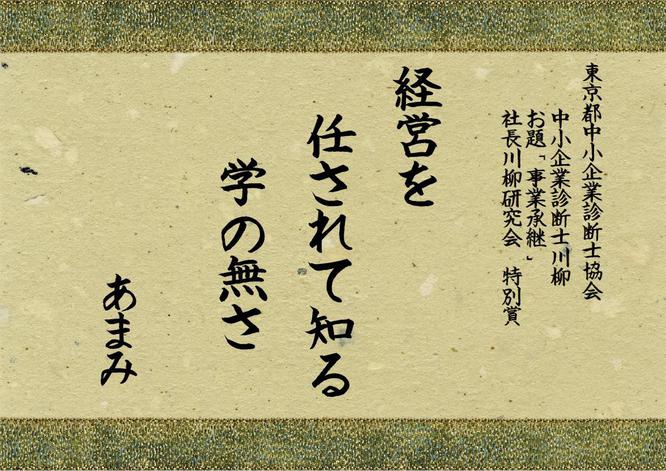 東京都中小企業診断士協会
中小企業診断士川柳
お題「事業承継」
社長川柳研究会　特別賞
経営を
任されて知る
学の無さ
あまみ